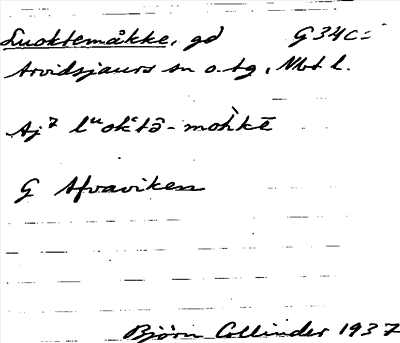 Luoktemåkke, gd G34c:
Arvidsjaurs sn o. tg, Nbt. l.
Aj 7 lᵘokʿtə̑ - moh̀kē
G Afvaviken
Bjørn Collinder 1937